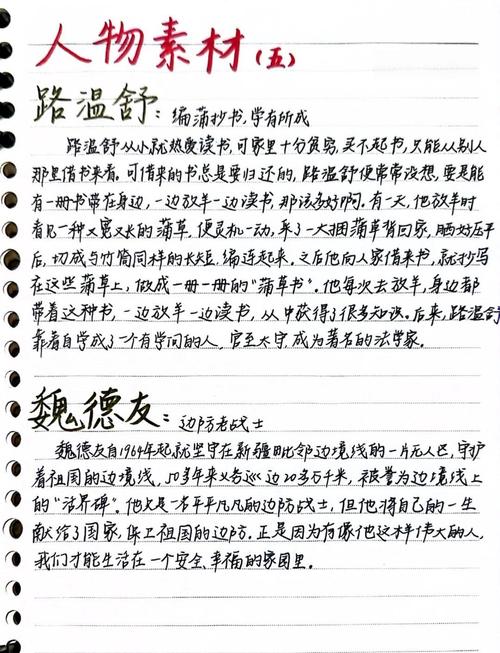 人物素材(五)
路温舒:编蒲抄书,学有所成
路温舒从小就热爱读书,可家里十分贫穷,买不起书,只能从别人
那里借书来看。可借来的书总是要归还的,路温舒便常常设想,要是能
有一册书带在身边,一边放羊一边读书,那该多好啊。有一天,他放羊时
看见一种又宽又长的蒲草,便灵机一动,采了一大捆蒲草背回家,晒好压平
后,切成与竹简同样的长短,编连起来。之后他向人家借来书,就抄写
在这些蒲草上,做成一册一册的“蒲草书”。他每次去放羊,身边都
带着这种书,一边放羊一边读书,从中获得了很多知识。后来,路温舒
靠着自学成了一个有学问的人,官至太守,成为著名的法学家。
魏德友:边防老战士
魏德友自1964年起就坚守在新疆毗邻边境线的一片无人区,守护
着祖国的边境线,50多年来义务巡边20多万千米,被誉为边境线上
的“活界碑”。他是一名平平凡凡的边防战士,但他将自己的一生
献给了国家,保卫祖国的边防。正是因为有像他这样伟大的人,
我们才能生活在一个安全、幸福的家园里。